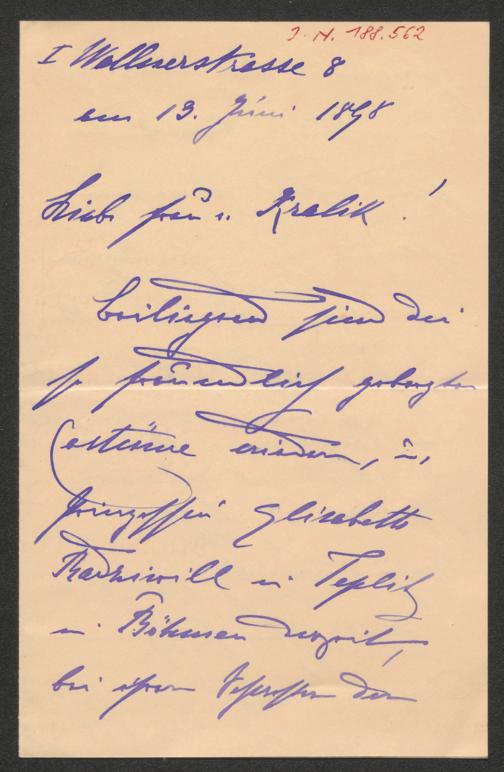 I. N. 188.562
I Wallnerstrasse 8
am 13. Juni 1898
Liebe Frau v. Kralik!
Beiliegend sind die
so freundlich geborgten
Costüme wieder, u.
Prinzessin Elisabeth
Radziwill in Teplitz
in Böhmen derzeit,
bei ihrer Schwester der